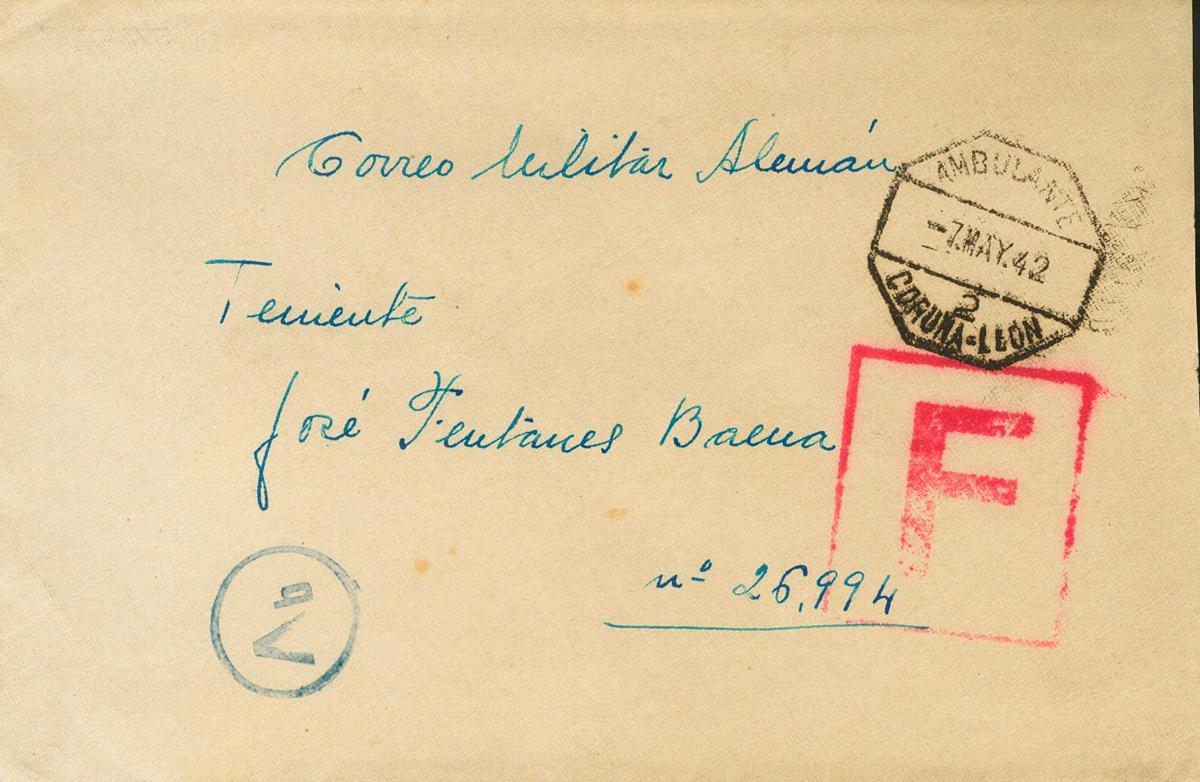 Correo Militar Alemán
AMBULANTE
-7.MAY.42
2
CORUÑA-LEON
Teniente
José Fentanes Baena
F
nº 26.994